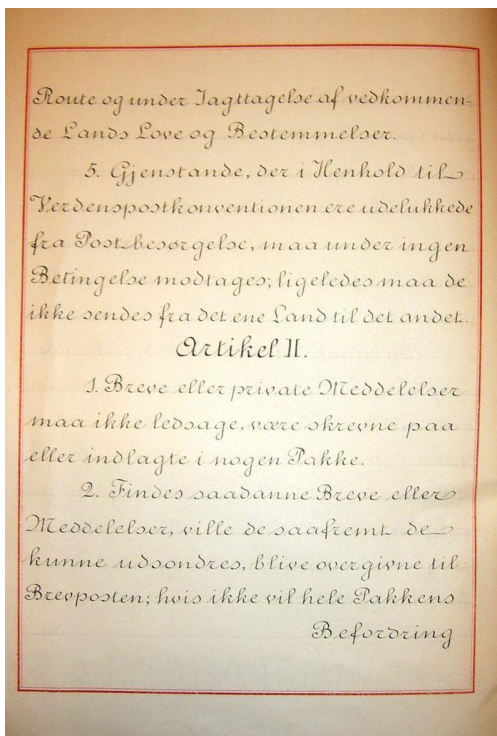 Route og under Iagttagelse af vedkommen-
de Lands Love og Bestemmelser.
5. Gjenstande, der i Henhold til
Verdenspostkonventionen ere udelukkede
fra Postbesørgelse, maa under ingen
Betingelse modtages; ligeledes maa de
ikke sendes fra det ene Land til det andet.
Artikel II.
1. Breve eller private Meddelelser
maa ikke ledsage, være skrevne paa
eller indlagte i nogen Pakke.
2. Findes saadanne Breve eller
Meddelelser, ville de saafremt de
kunne udsondres, blive overgivne til
Brevposten; hvis ikke vil hele Pakkens
Befordring